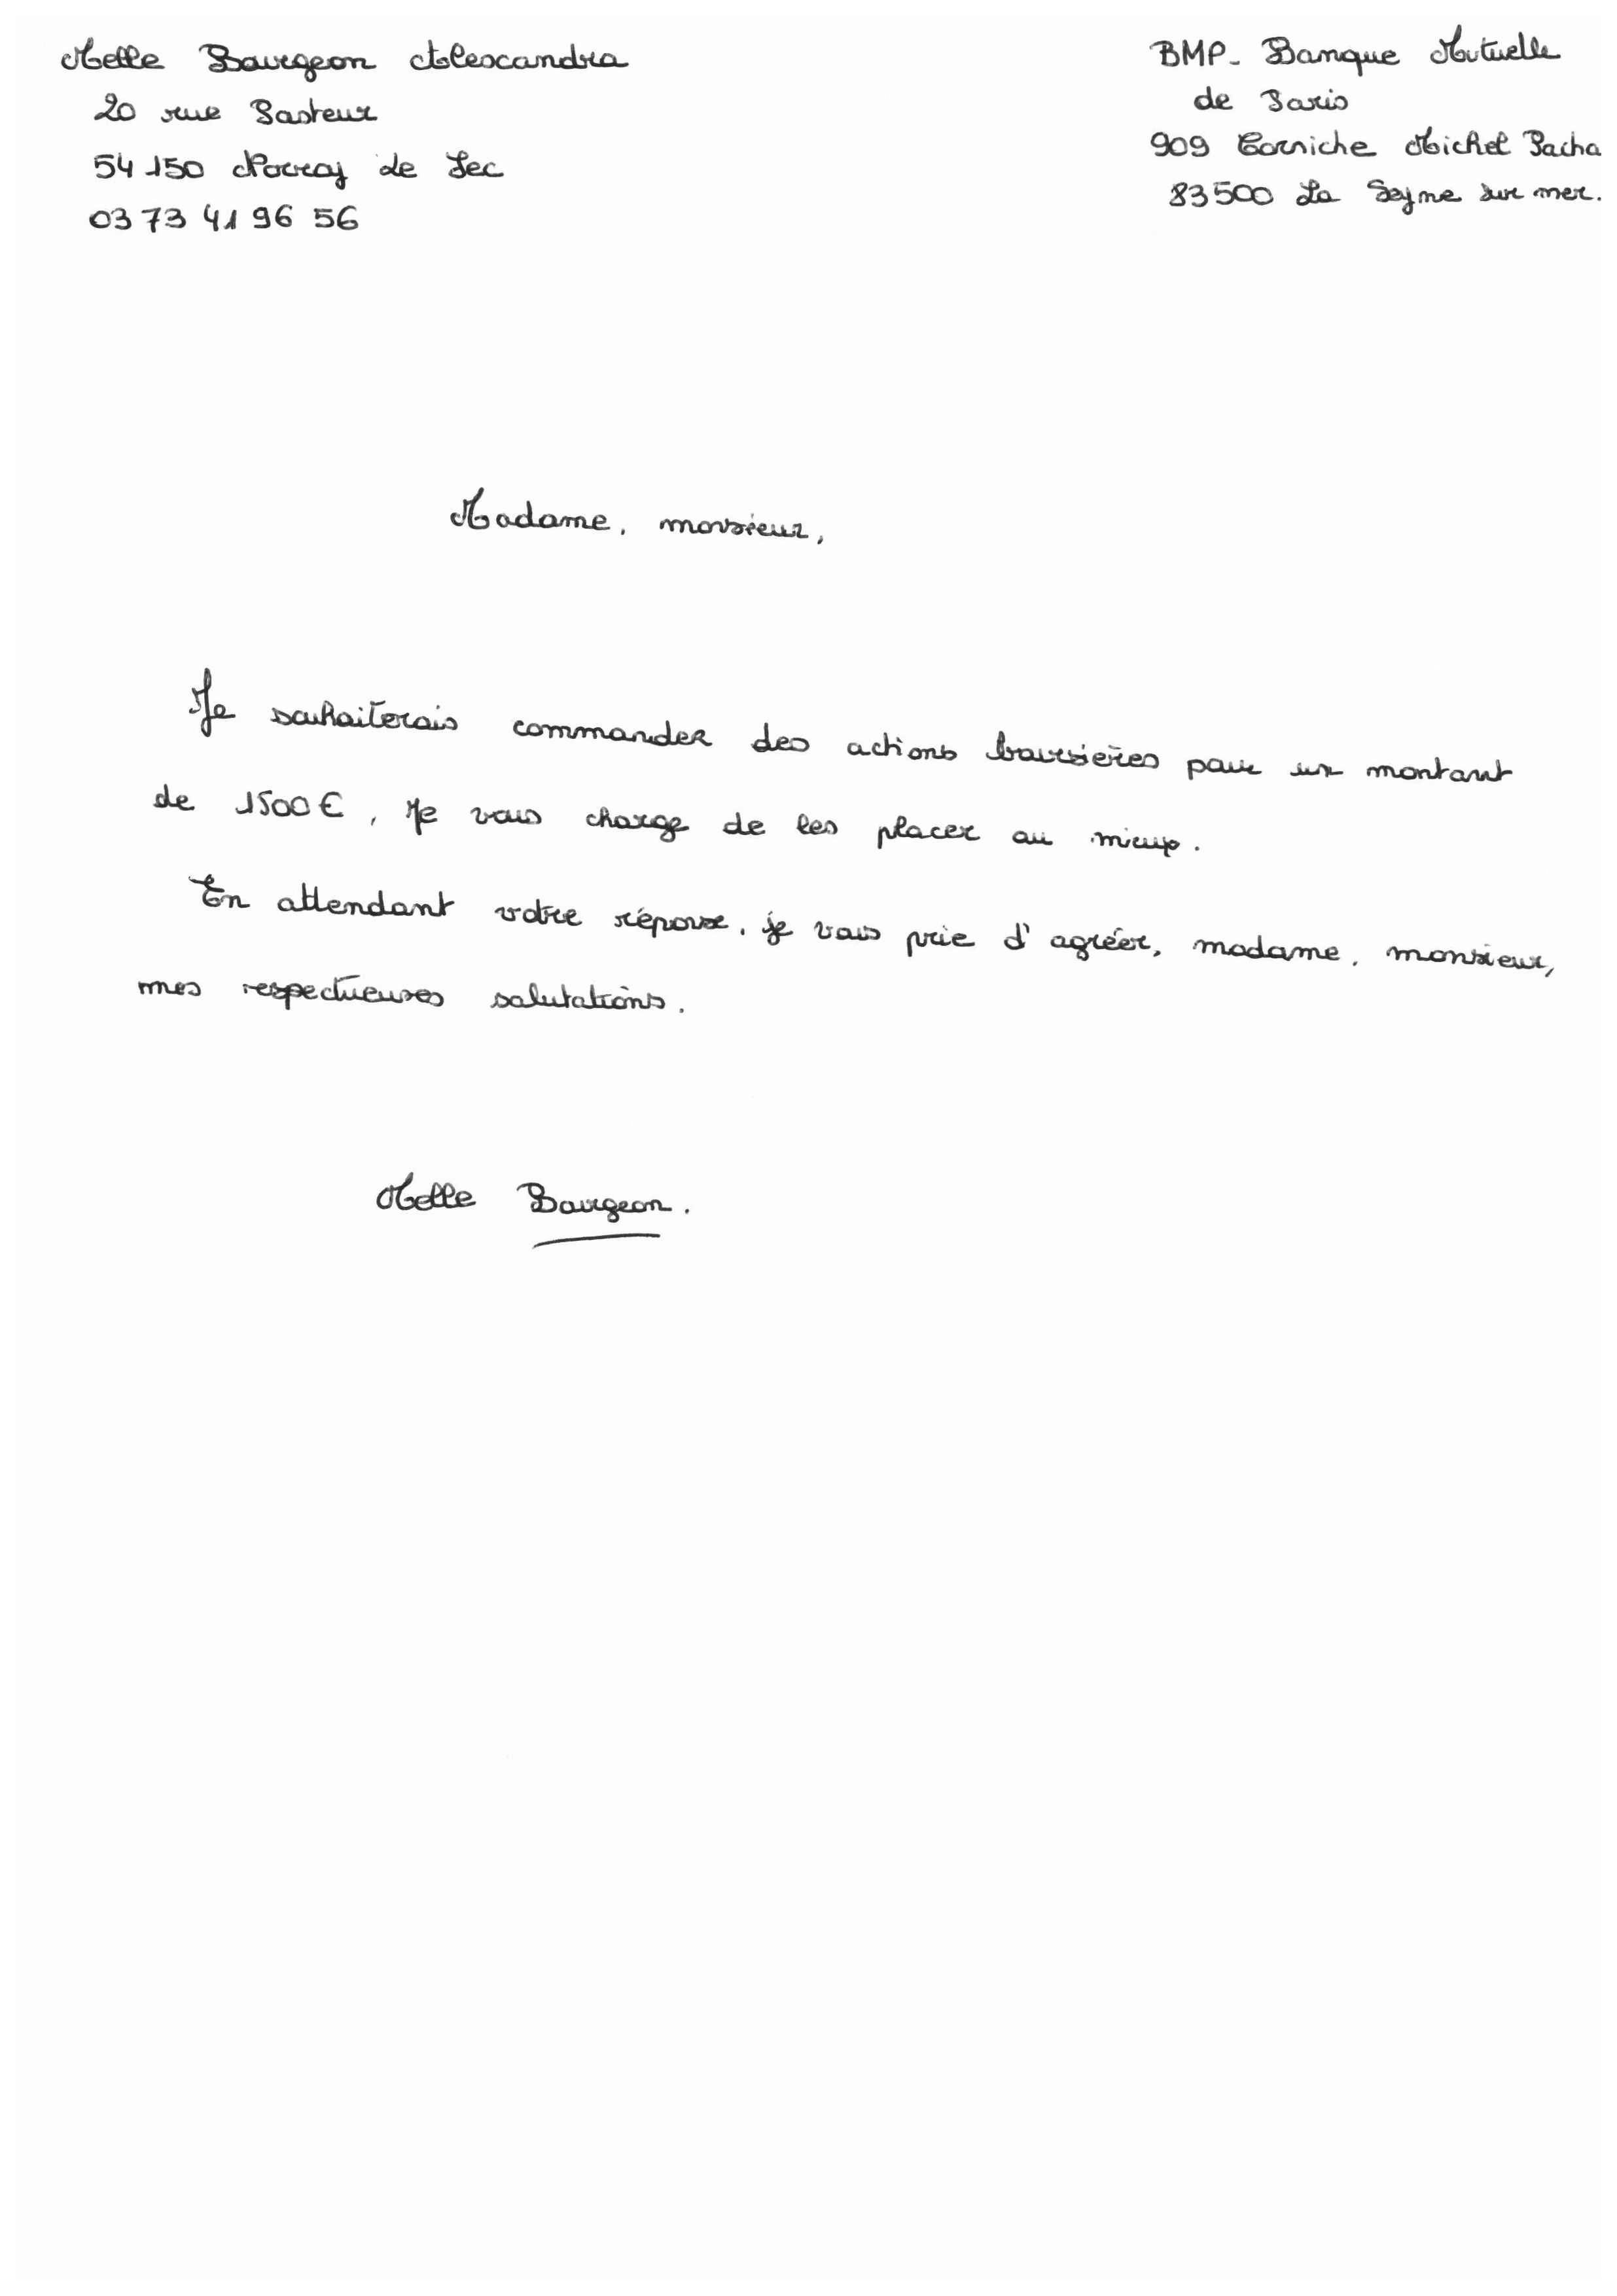 Melle Bourgeon Alexandra
20 rue Pasteur
54150 Norroy le Sec
03 73 41 96 56
BMP- Banque Mutuelle
de Paris
909 Corniche Michel Pacha
83500 La Seyne sur mer.
Madame, monsieur,
Je souhaiterais commander des actions boursières pour un montant
de 1500€, Je vous charge de les placer au mieux.
En attendant votre réponse, je vous prie d'agréer, madame, monsieur,
mes respectueuses salutations.
Melle Bourgeon.